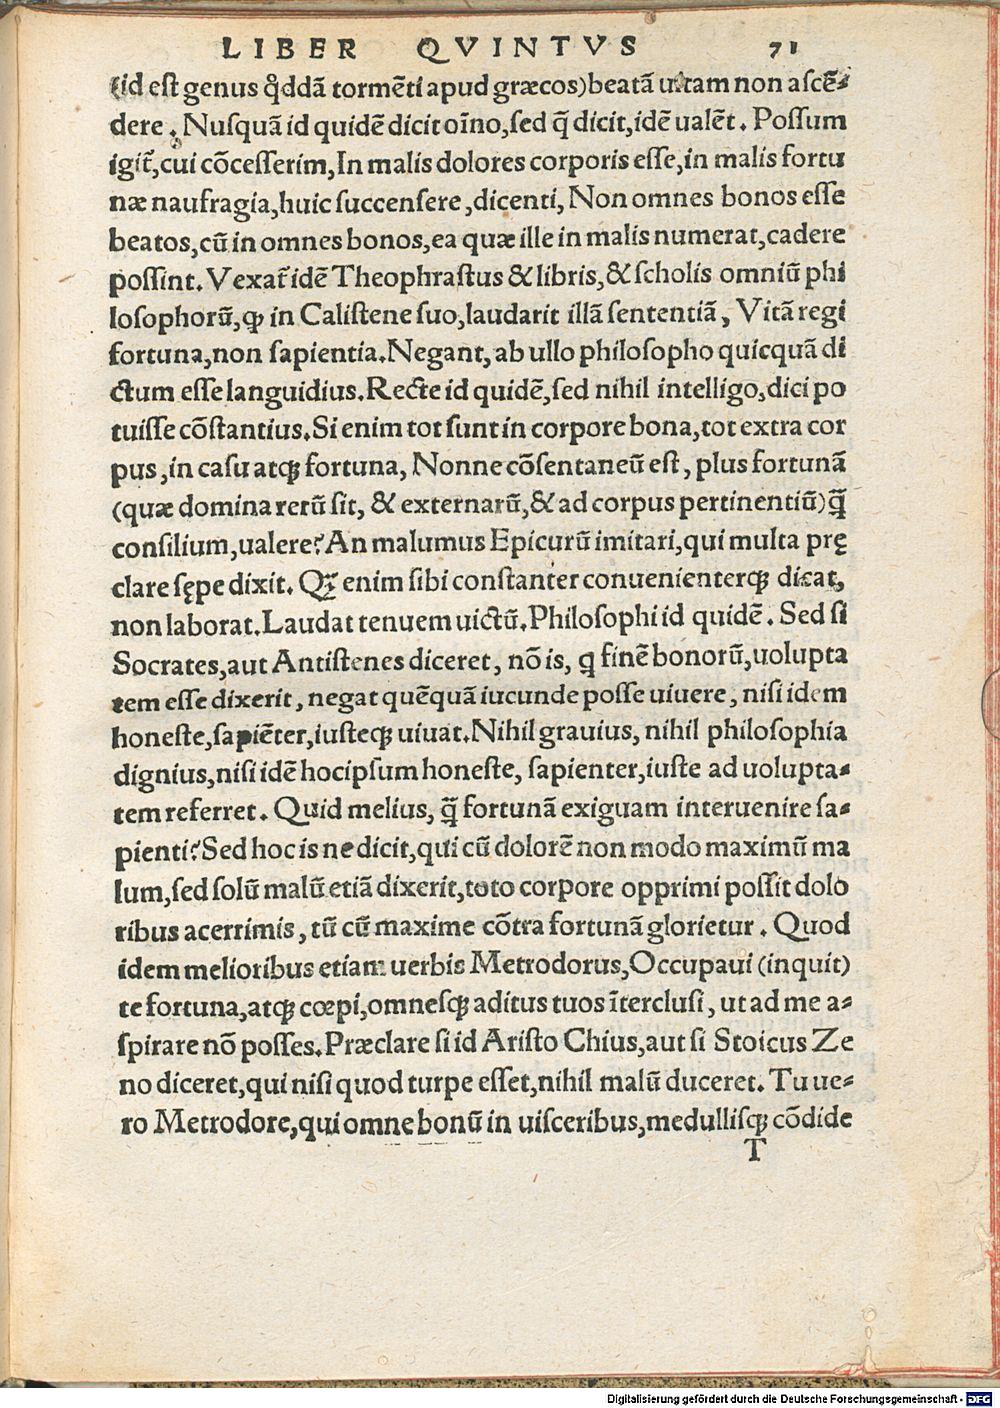 LIBER QVINTVS 71
(id est genus qͦddā tormēti apud græcos) beatā uitam non ascē-
dere. Nusquā id quidē dicit oīno, sed q̄ dicit, idē ualēt. Possum
igit̄, cui cōcesserim, In malis dolores corporis esse, in malis fortu
næ naufragia, huic succensere, dicenti, Non omnes bonos esse
beatos, cū in omnes bonos, ea quæ ille in malis numerat, cadere
possint. Vexat̄ idē Theophrastus & libris, & scholis omniū phi
losophorū, ꝙ in Calistene suo, laudarit illā sententiā, Vitā regi
fortuna, non sapientia. Negant, ab ullo philosopho quicquā di
ctum esse languidius. Recte id quidē, sed nihil intelligo, dici po
tuisse cōstantius. Si enim tot sunt in corpore bona, tot extra cor
pus, in casu atqꝫ fortuna, Nonne cōsentaneū est, plus fortunā
(quæ domina rerū sit, & externarū, & ad corpus pertinentiū) q̄
consilium, ualere? An malumus Epicurū imitari, qui multa prę
clare sępe dixit. Qꝫ enim sibi constanter conuenienterqꝫ dicat,
non laborat. Laudat tenuem uictū. Philosophi id quidē. Sed si
Socrates, aut Antistenes diceret, nō is, q finē bonorū, uolupta
tem esse dixerit, negat quēquā iucunde posse uiuere, nisi idem
honeste, sapiēter, iusteqꝫ uiuat. Nihil grauius, nihil philosophia
dignius, nisi idē hoc ipsum honeste, sapienter, iuste ad uolupta-
tem referret. Quid melius, q̄ fortunā exiguam interuenire sa-
pienti? Sed hoc is ne dicit, qui cū dolorē non modo maximū ma
lum, sed solū malū etiā dixerit, toto corpore opprimi possit dolo
ribus acerrimis, tū cū maxime cōtra fortunā glorietur. Quod
idem melioribus etiam uerbis Metrodorus, Occupaui (inquit)
te fortuna, atqꝫ cœpi, omnesqꝫ aditus tuos īterclusi, ut ad me a-
spirare nō posses. Præclare si id Aristo Chius, aut si Stoicus Ze
no diceret, qui nisi quod turpe esset, nihil malū duceret. Tu ue-
ro Metrodore, qui omne bonū in uisceribus, medullisqꝫ cōdide
T
Digitalisierung gefördert durch die Deutsche Forschungsgemeinschaft - DFG